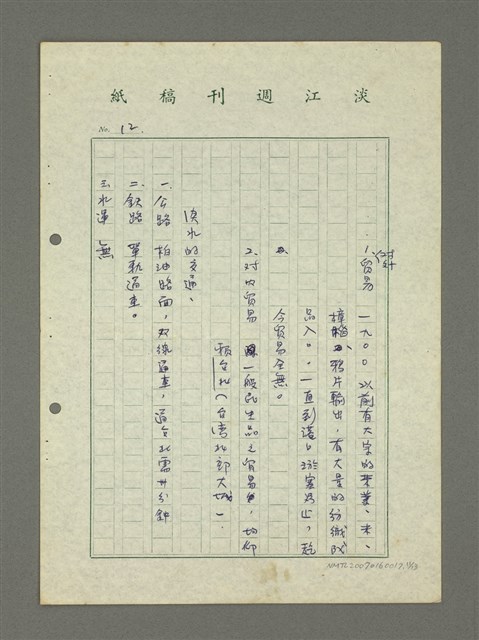 淡江週刊稿紙
No. 12.
1. 对外貿易 一九〇〇以前有大宗的茶葉、木、
樟腦、鴉片輸出，有大量的紡織成
品入。。一直到港口淤塞為止，迄
今貿易全無。
2. 对內貿易 一般民生品之貿易，均仰
賴台北（台湾北部大城）.
淡水的交通、
一、公路 柏油路面，双線通車，過台北需卅分鉡
二、鉄路 單軌通車。
三、水運 無
NMTL20070160017.